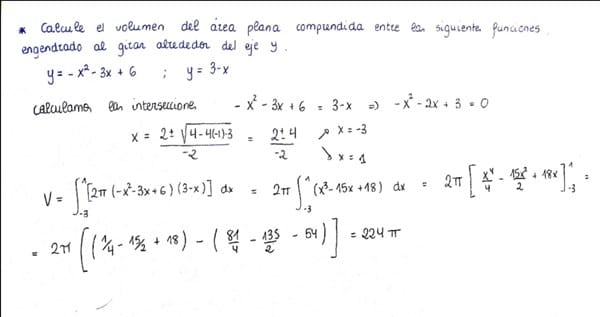 * Calcule el volumen del área plana comprendida entre las siguientes funciones
engendrado al girar alrededor del eje y.
y = -x² - 3x + 6 ; y = 3-x
Calculamos las intersecciones - x² - 3x + 6 = 3-x => -x² - 2x + 3 = 0
x = 2 ± √4-4(-1)·3 / -2 = 2 ± 4 / -2 ↗ x = -3 ↘ x = 1
V = ∫₋₃¹ [2π (-x²-3x+6) (3-x)] dx = 2π ∫₋₃¹ (x³-15x+18) dx = 2π [x⁴/4 - 15x²/2 + 18x]₋₃¹ =
= 2π [(1/4 - 15/2 + 18) - (81/4 - 135/2 - 54)] = 224 π